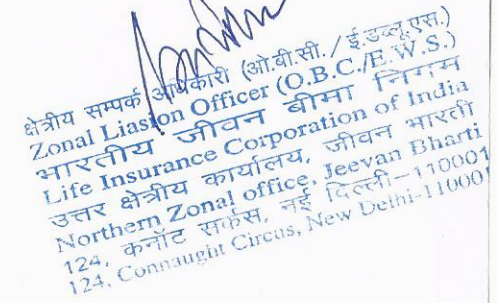 क्षेत्रीय सम्पर्क अधिकारी (ओ.बी.सी. / ई.डब्लू.एस.)
Zonal Liasion Officer (O.B.C./E.W.S.)
भारतीय जीवन बीमा निगम
Life Insurance Corporation of India
उत्तर क्षेत्रीय कार्यालय, जीवन भारती
Northern Zonal office, Jeevan Bharti
124, कनॉट सर्कस, नई दिल्ली–110001
124, Connaught Circus, New Delhi-110001